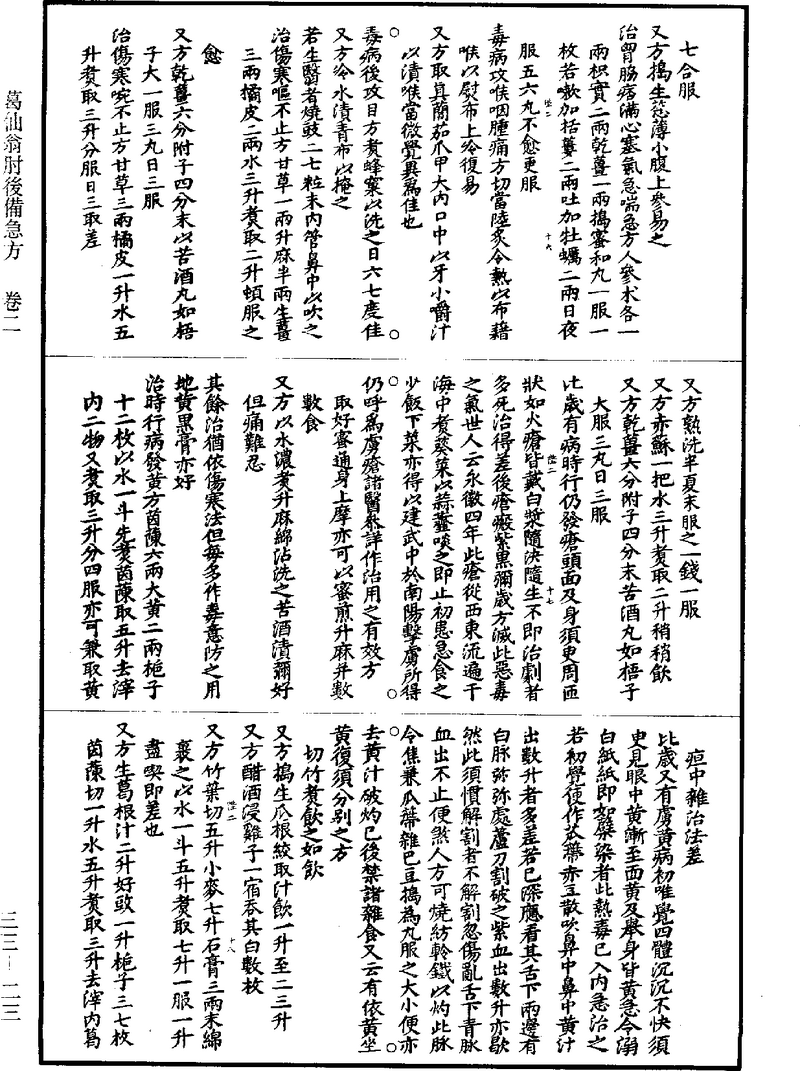 七合服
又方搗生葱薄小腹上參易之
治胷脇痞滿心塞氣急喘急方人參朮各一
兩枳實二兩乾薑一兩搗蜜和丸一服一
枚若嗽加栝蔞二兩吐加牡蠣二兩日夜
服五六丸不愈更服
毒病攻喉咽腫痛方切當陸炙令熱以布藉
喉以熨布上冷復易
又方取真䕡茹爪甲大內口中以牙小嚼汁
以漬喉當微覺異爲佳也
毒病後攻目方煑蜂窠以洗之日六七度佳
又方冷水漬青布以掩之
若生翳者燒豉二七粒末內管鼻中以吹之
治傷寒嘔不止方甘草一兩升麻半兩生薑
三兩橘皮二兩水三升煑取二升頓服之
愈
又方乾薑六分附子四分末以苦酒丸如梧
子大一服三丸日三服
治傷寒啘不止方甘草三兩橘皮一升水五
升煑取三升分服日三取差
又方熟洗半夏末服之一錢一服
又方赤蘇一把水三升煑取二升稍稍飲
又方乾薑六分附子四分末苦酒丸如梧子
大服三丸日三服
比歲有病時行仍發瘡頭面及身須臾周匝
狀如火瘡皆戴白漿隨決隨生不即治劇者
多死治得差後瘡瘢紫黑彌歲方滅此惡毒
之氣世人云永徽四年此瘡從西東流遍于
海中煑葵菜以蒜虀啖之即止初患急食之
少飯下菜亦得以建武中於南陽擊虜所得
仍呼爲虜瘡諸醫叅詳作治用之有效方
取好蜜通身上摩亦可以蜜煎升麻并數
數食
又方以水濃煑升麻綿沾洗之苦酒漬彌好
但痛難忍
其餘治猶依傷寒法但每多作毒意防之用
地黃黑膏亦好
治時行病發黃方茵蔯六兩大黃二兩梔子
十二枚以水一斗先煑茵蔯取五升去滓
內二物又煑取三升分四服亦可兼取黃
疸中雜治法差
比歲又有虜黃病初唯覺四體沉沉不快須
臾見眼中黃漸至面黃及舉身皆黃急令溺
白紙紙即如蘗染者此熱毒已入內急治之
若初覺便作苽蔕赤豆散吹鼻中鼻中黃汁
出數升者多差若已深應看其舌下兩邊有
白脉弥弥處蘆刀割破之紫血出數升亦歇
然此須慣解割者不解割忽傷亂舌下青脉
血出不止便煞人方可燒紡軨鐵以灼此脉
令焦兼瓜蔕雜巴豆搗為丸服之大小便亦
去黃汁破灼已後禁諸雜食又云有依黃坐
黃復須分別之方
切竹煑飲之如飲
又方搗生瓜根絞取汁飲一升至二三升
又方醋酒浸雞子一宿吞其白數枚
又方竹葉切五升小麥七升石膏三兩末綿
裹之以水一斗五升煑取七升一服一升
盡喫即差也
又方生葛根汁二升好豉一升梔子三七枚
茵蔯切一升水五升煑取三升去滓內葛
葛仙翁肘後備急方 卷二
三三—二三
陛二
十六
陛二
十七
陛二
十八